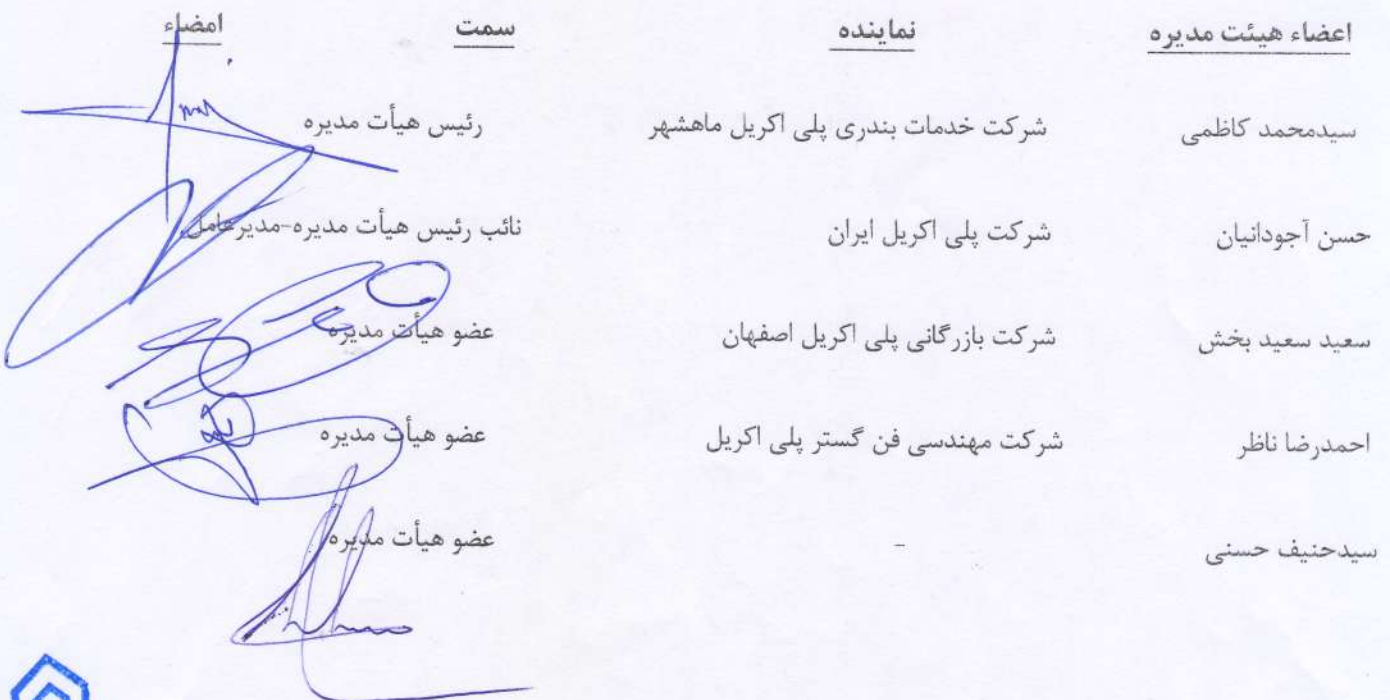 اعضاء هیئت مدیره نماینده سمت امضاء
سیدمحمد کاظمی شرکت خدمات بندری پلی اکریل ماهشهر رئیس هیأت مدیره
حسن آجودانیان شرکت پلی اکریل ایران نائب رئیس هیأت مدیره-مدیرعامل
سعید سعید بخش شرکت بازرگانی پلی اکریل اصفهان عضو هیأت مدیره
احمدرضا ناظر شرکت مهندسی فن گستر پلی اکریل عضو هیأت مدیره
سیدحنیف حسنی - عضو هیأت مدیره